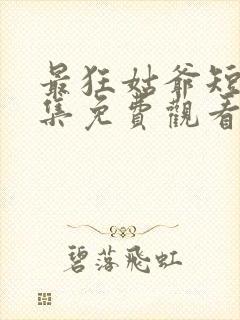 最狂姑爷短
集免費觀看
碧落飛虹